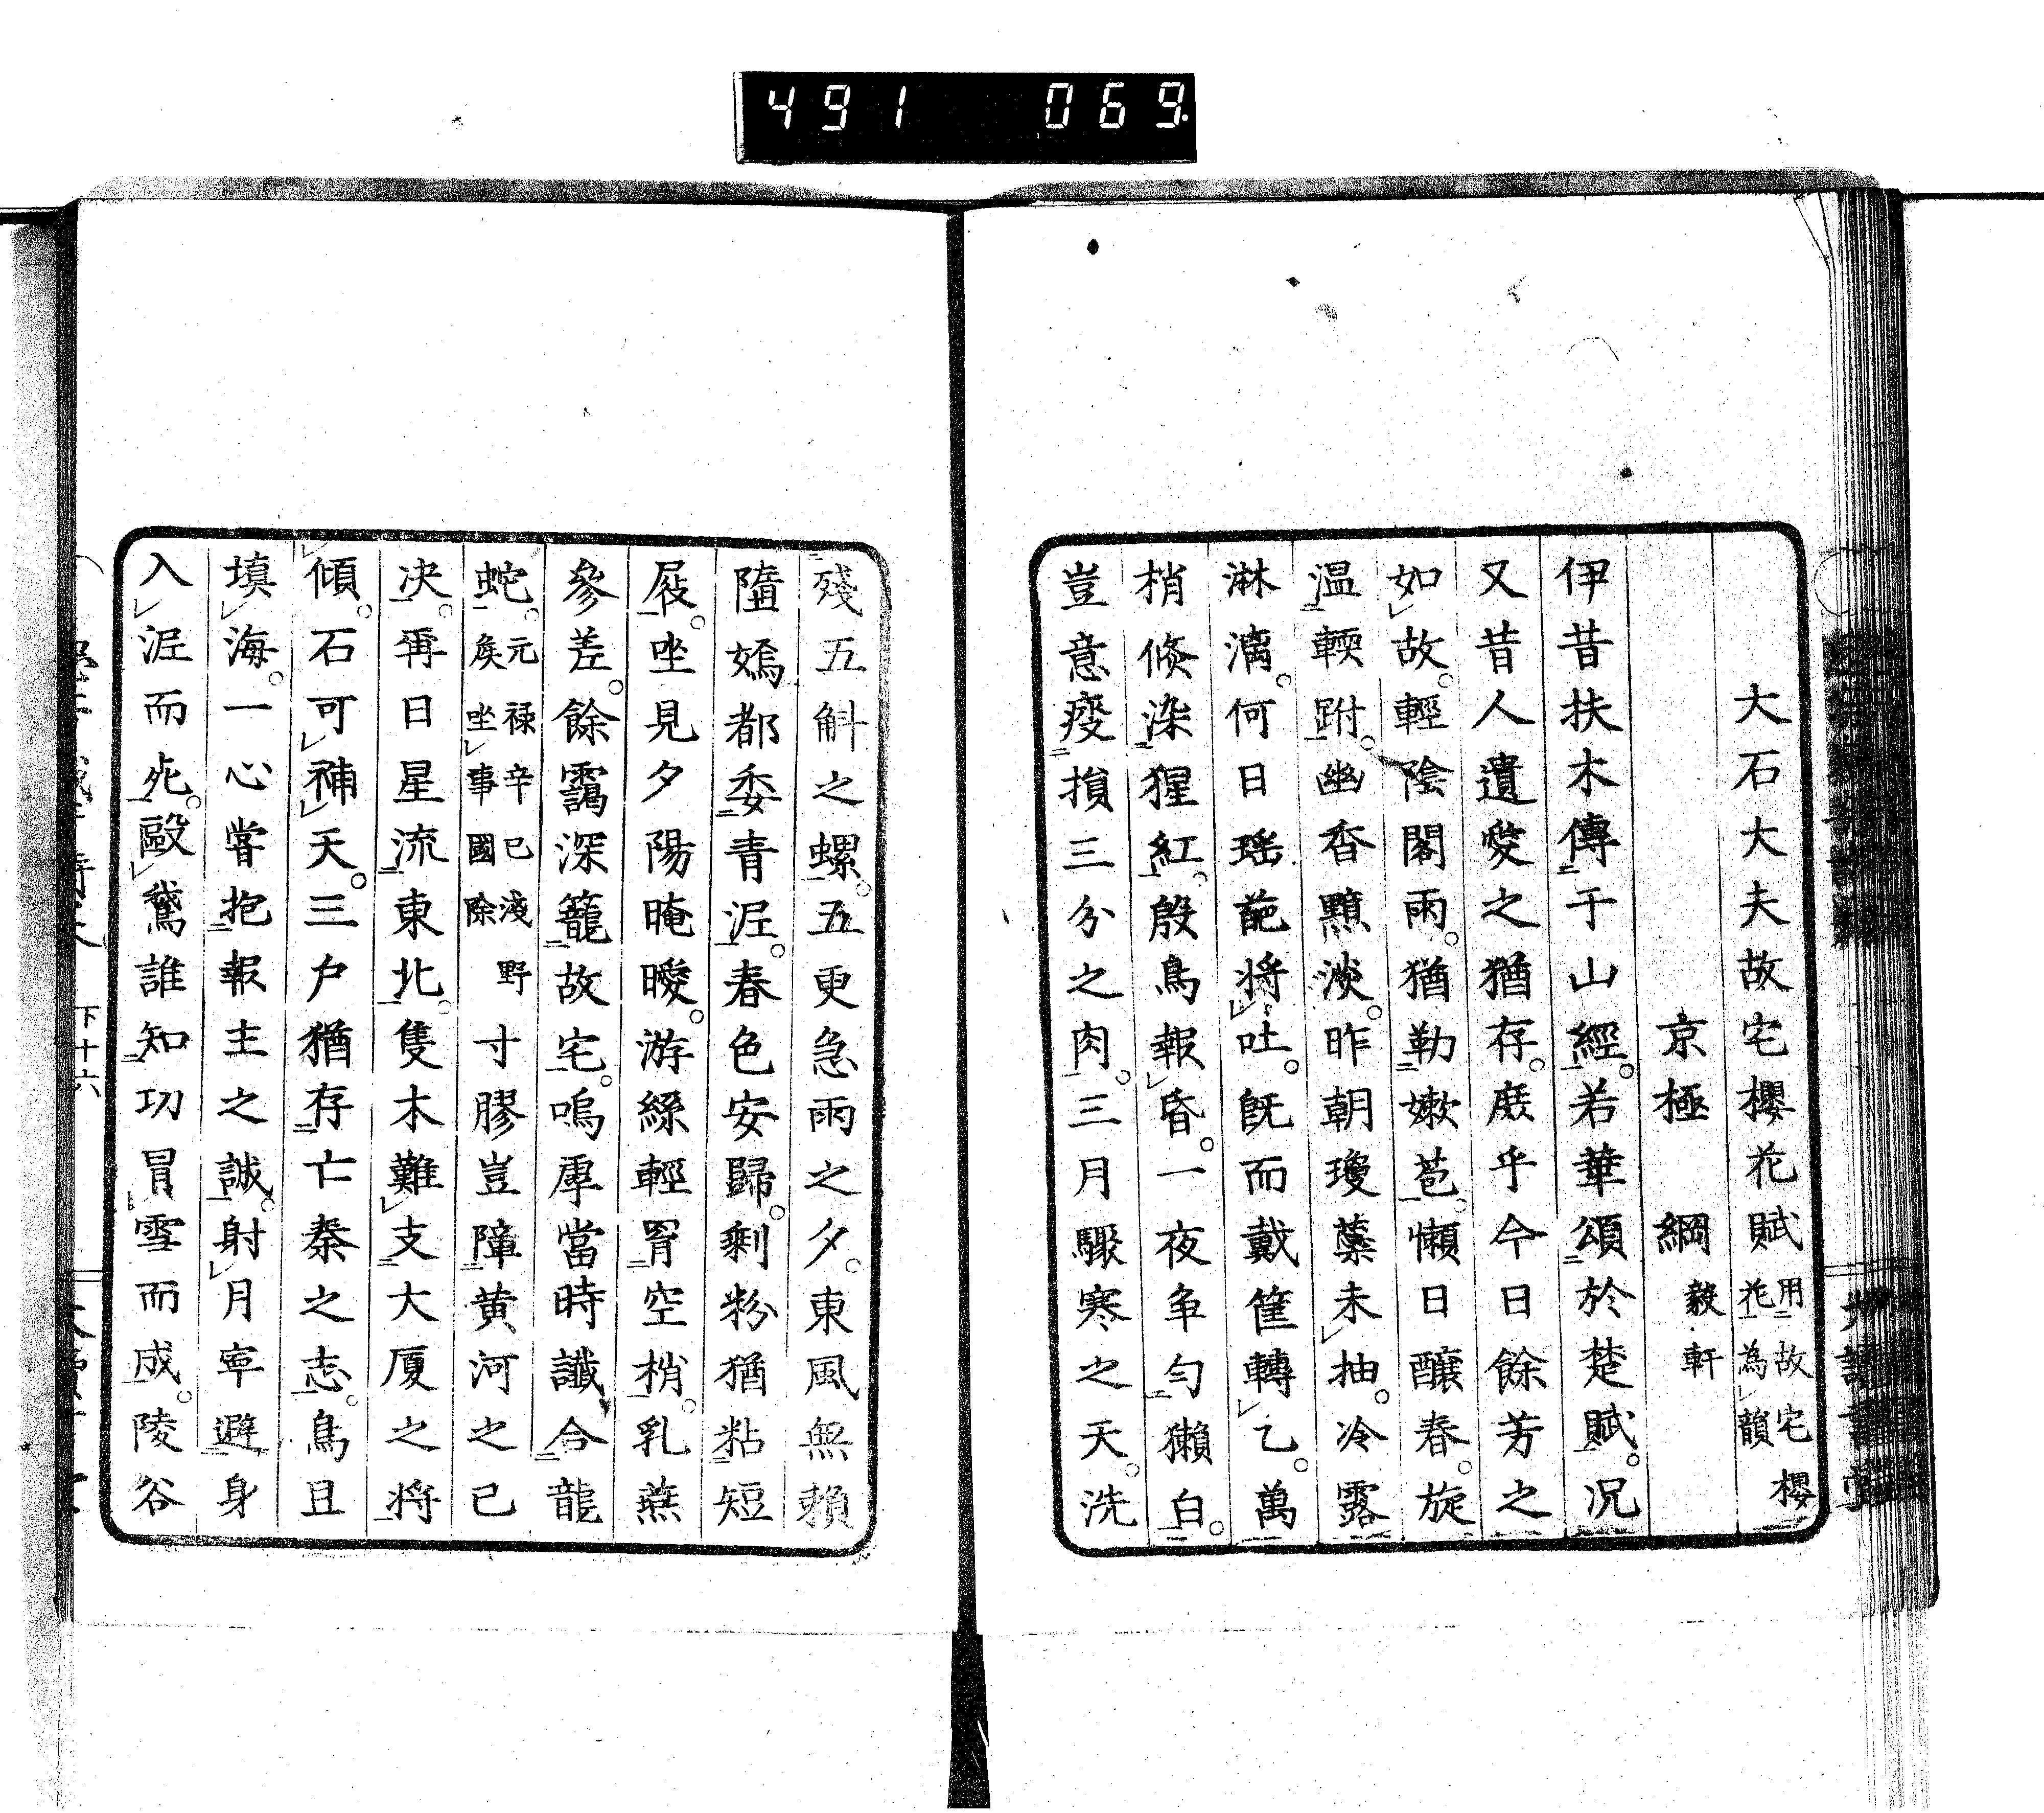 491 069
大石大夫故宅櫻花賦 用故宅櫻花為韻
京極 綱 毅軒
伊昔扶木傳于山經。若華頌於楚賦。況
又昔人遺愛之猶存。庶乎今日餘芳之
如故。輕陰閣雨。猶勒嫩苞。懶日釀春。旋
溫輭跗。幽香黯淡。昨朝瓊蘂未抽。冷露
淋漓。何日瑤葩將吐。既而戴篚轉乙。萬
梢倏染猩紅。殷鳥報昏。一夜争勻獺白。
豈意瘦損三分之肉。三月驟寒之天。洗
殘五斛之螺。五更急雨之夕。東風無賴
隨嫣都委青泥。春色安歸。剩粉猶粘短
屐。坐見夕陽晻曖。游絲輕罥空梢。乳燕
參差。餘靄深籠故宅。嗚虖當時讖合龍
蛇。元禄辛巳淺野矦坐事國除 寸膠豈障黃河之已
决。爯日星流東北。隻木難支大厦之將
傾。石可補天。三户猶存亡秦之志。鳥且
填海。一心嘗抱報主之誠。射月寧避身
入泥而死。毆鵞誰知功冒雪而成。陵谷
下十六